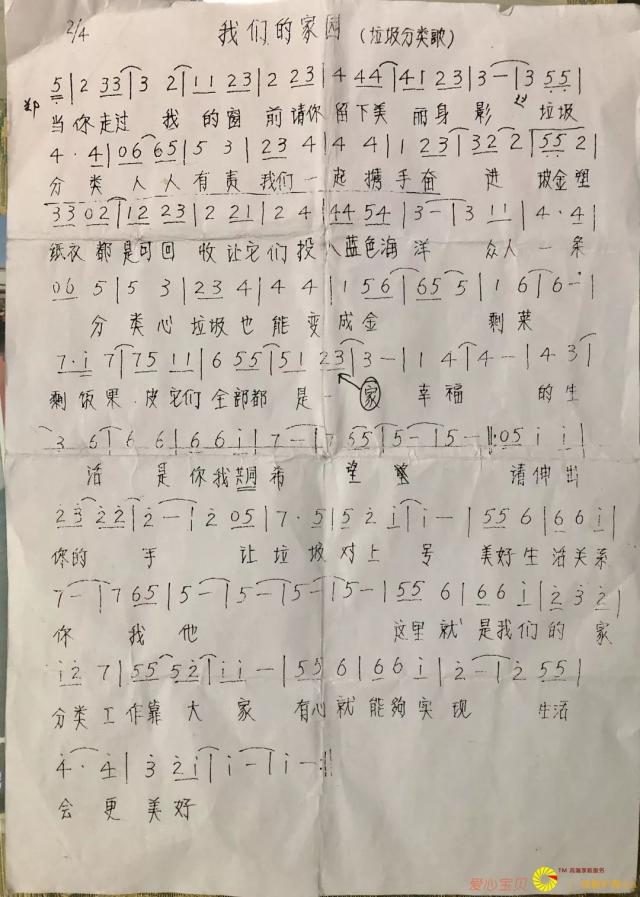 2/4 我们的家园 (垃圾分类歌)
5 | 2 33 | 3 2 | 11 23 | 2 23 | 4 44 | 41 23 | 3 — | 3 55 |
当你走过 我的窗前请你留下美丽身影 垃圾
4 · 4 | 06 65 | 5 3 | 23 4 | 4 4 | 1 23 | 32 2 | 55 2 |
分类人人有责我们一起携手奋 进 玻金塑
33 02 | 12 23 | 2 21 | 2 4 | 44 54 | 3 — | 3 11 | 4 · 4 |
纸衣都是可回收让它们投入蓝色海洋 众人一条
06 5 | 5 3 | 23 4 | 4 4 | 1 56 | 65 5 | 1 6 | 6 — |
分类心垃圾也能变成金 剩菜
7 · i 7 | 75 11 | 6 55 | 51 23 | 3 — | 1 4 | 4 — | 4 3 |
剩饭果皮它们全部都是一家幸福 的生
3 6 | 6 6 | 6 6 i | 7 — | 7 55 | 5 — | 5 — :‖ 05 i i |
活 是你我共同希 望 请伸出
2 3 2 2 | 2 — | 2 05 | 7 · 5 | 5 2 i | i — | 55 6 | 6 6 i |
你的 手 让垃圾对上 号 美好生活关系
7 — | 7 65 | 5 — | 5 — | 5 — | 5 — | 55 6 | 6 6 i | 2 3 2 |
你 我 他 这里就是我们的家
i 2 7 | 55 52 | i i — | 55 6 | 6 6 i | 2 — | 2 55 |
分类工作靠大家 有心就能够实现 生活
4 · 4 | 3 2 i | i — | i — :‖
会更美好
爱心宝贝 TM 高端家庭服务